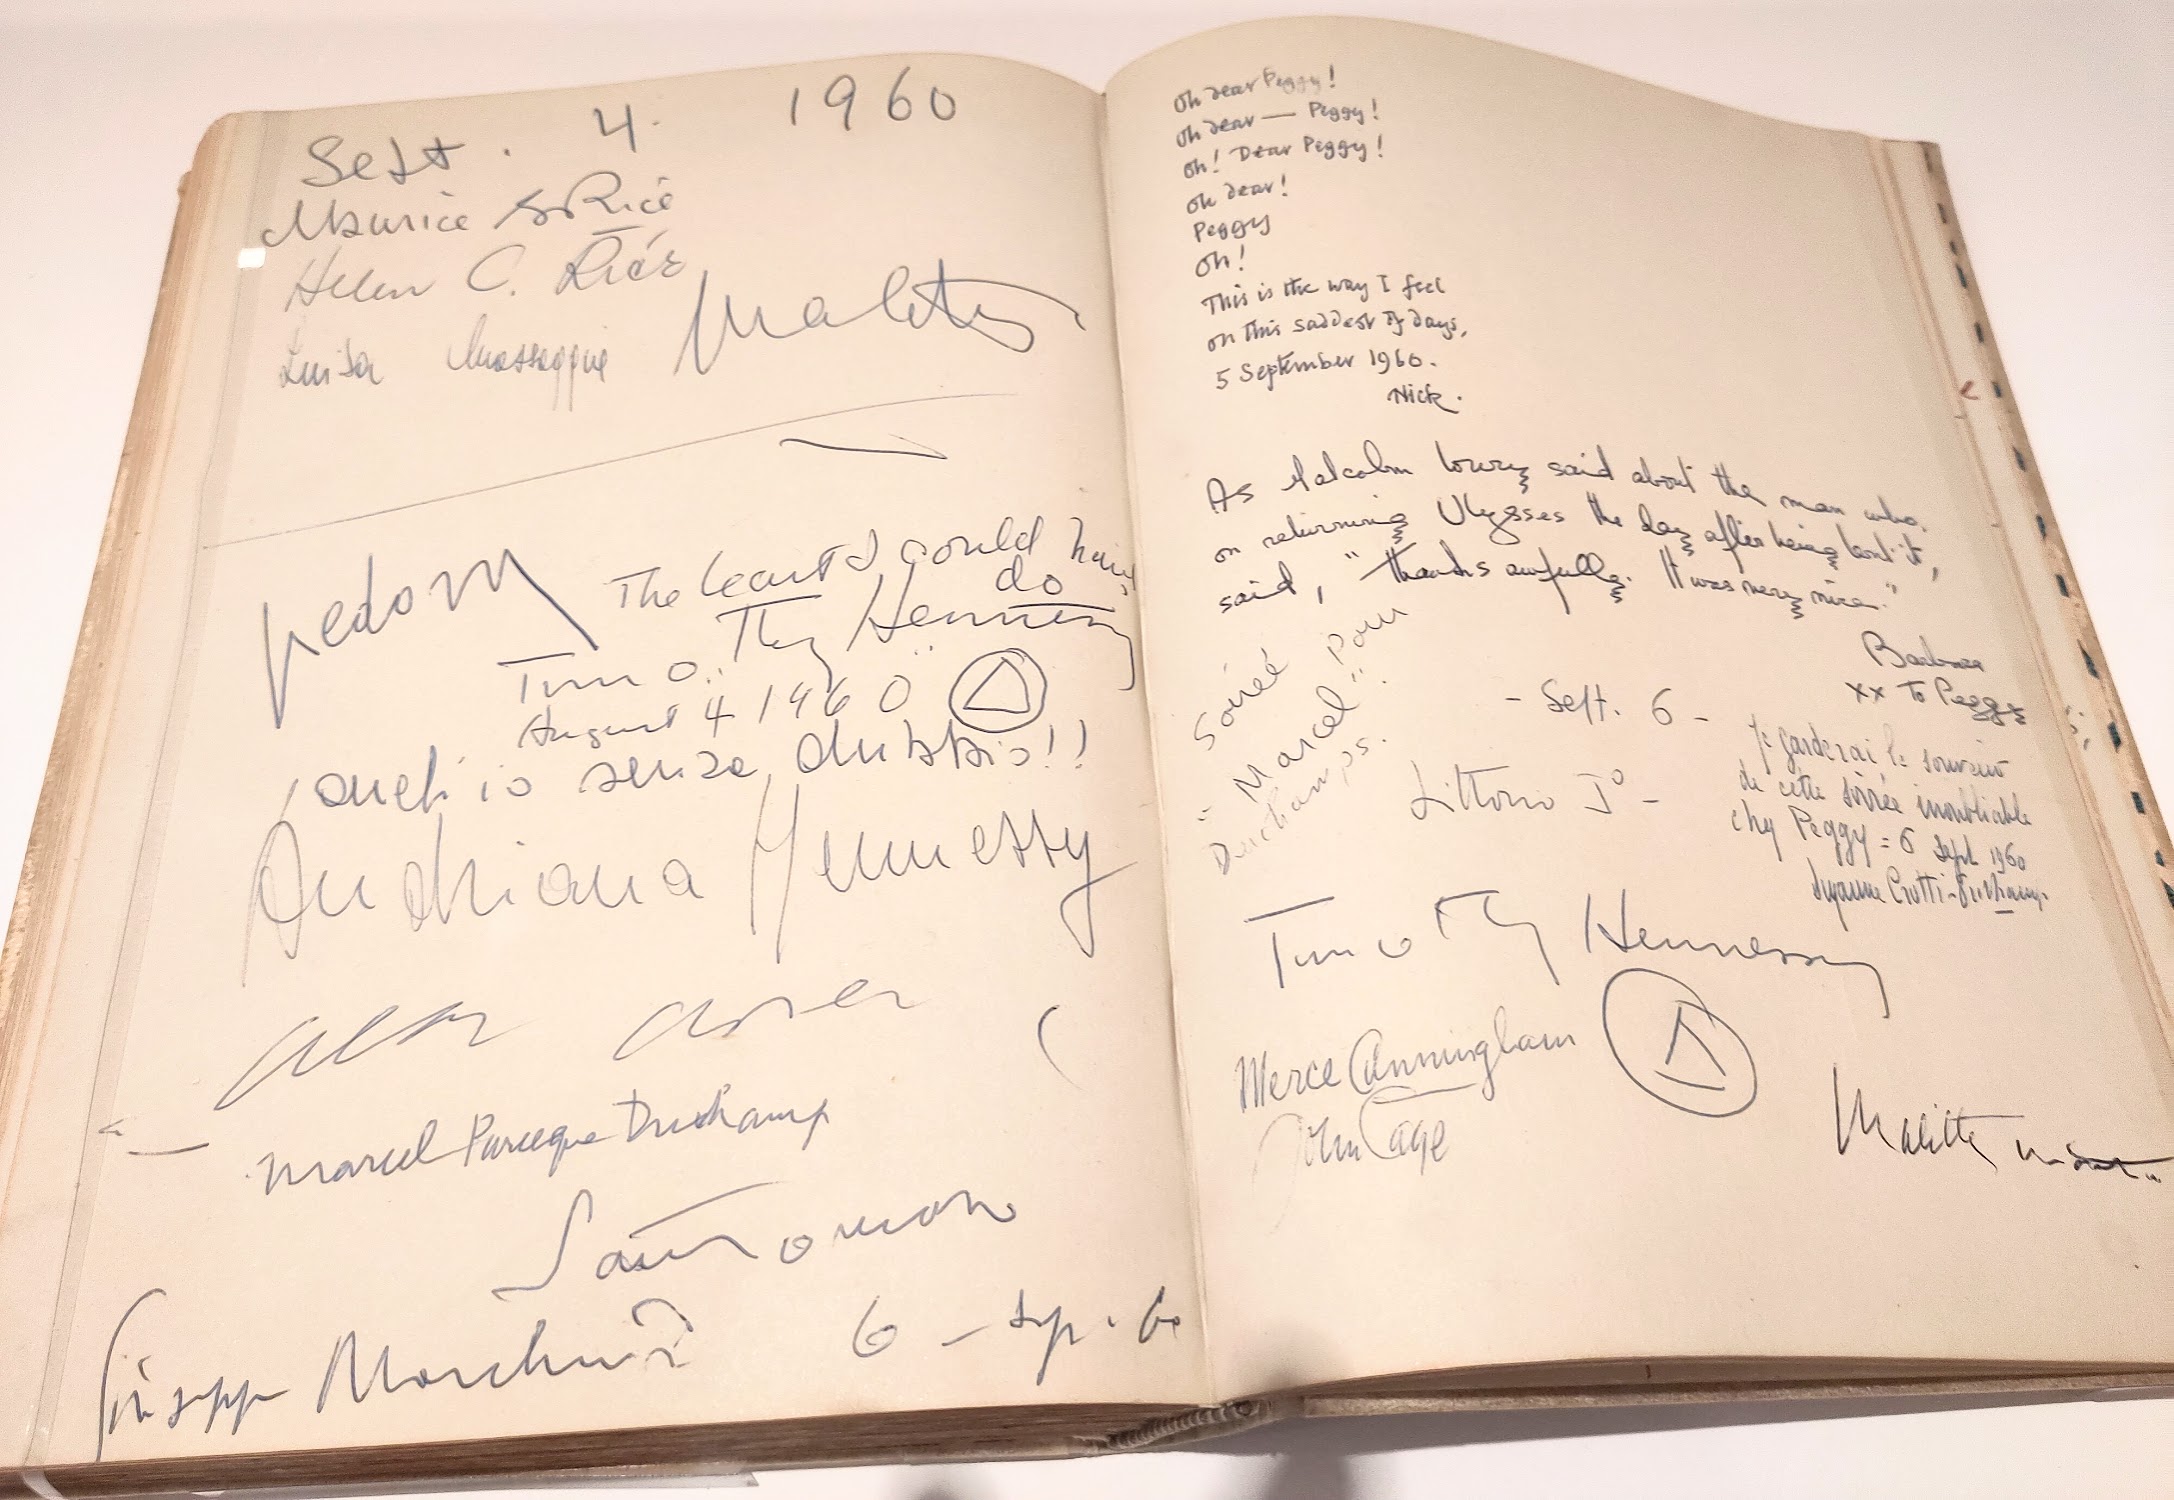 Sept. 4. 1960
Maurice S Rice
Helen C. Rice
Luisa
The least I could have
do
Timothy Hennessy
August 4 1960
anch'io senza dubbio!!
Andriana Hennessy
Marcel Duchamp
Santomaso
Giuseppe Marchiori 6 - sep. 60
Oh dear Peggy!
Oh dear — Peggy!
Oh! Dear Peggy!
Oh dear!
Peggy
Oh!
This is the way I feel
on this saddest of days,
5 September 1960.
Nick.
As Malcolm Lowry said about the man who,
on returning Ulysses the day after being lent it,
said, "thanks awfully. It was very nice."
Barbara
xx To Peggy
- Sept. 6 -
Soirée pour
"Marcel"
Duchamps.
Je garderai le souvenir
de cette soirée inoubliable
chez Peggy = 6 Sept 1960
Suzanne Crotti-Duchamp
Timothy Hennessy
Merce Cunningham
John Cage